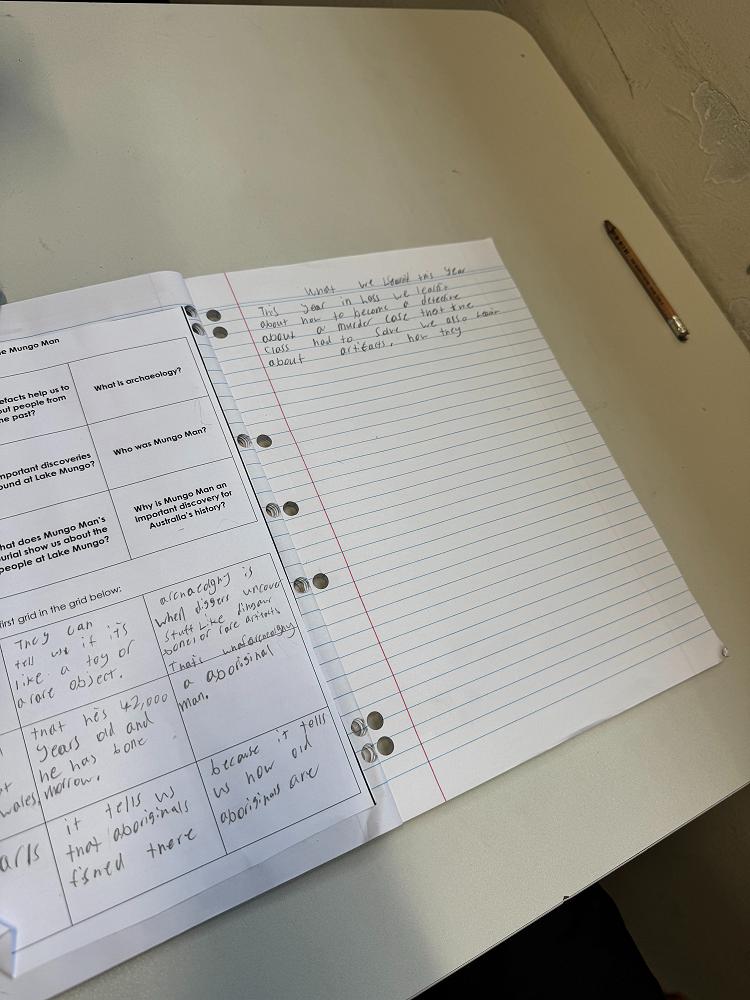 e Mungo Man
efacts help us to
out people from
he past?
What is archaeology?
mportant discoveries
ound at Lake Mungo?
Who was Mungo Man?
hat does Mungo Man's
urial show us about the
people at Lake Mungo?
Why is Mungo Man an
important discovery for
Australia's history?
first grid in the grid below:
They can
tell us if it's
like a toy or
a rare object.
archaeolghy is
when diggers uncover
stuff like dinguar
bones or rare artifacts
That's what
wales,
that he's 42,000
years old and
he has bone
morrow.
a aboriginal
man.
arls
it tells us
that aboriginals
fished there
because it tells
us how old
aboriginals are
What we learnd this year
This year in hass we learn
about how to become a detective
about a murder case that the
class had to solve we also learn
about artifacts, how they